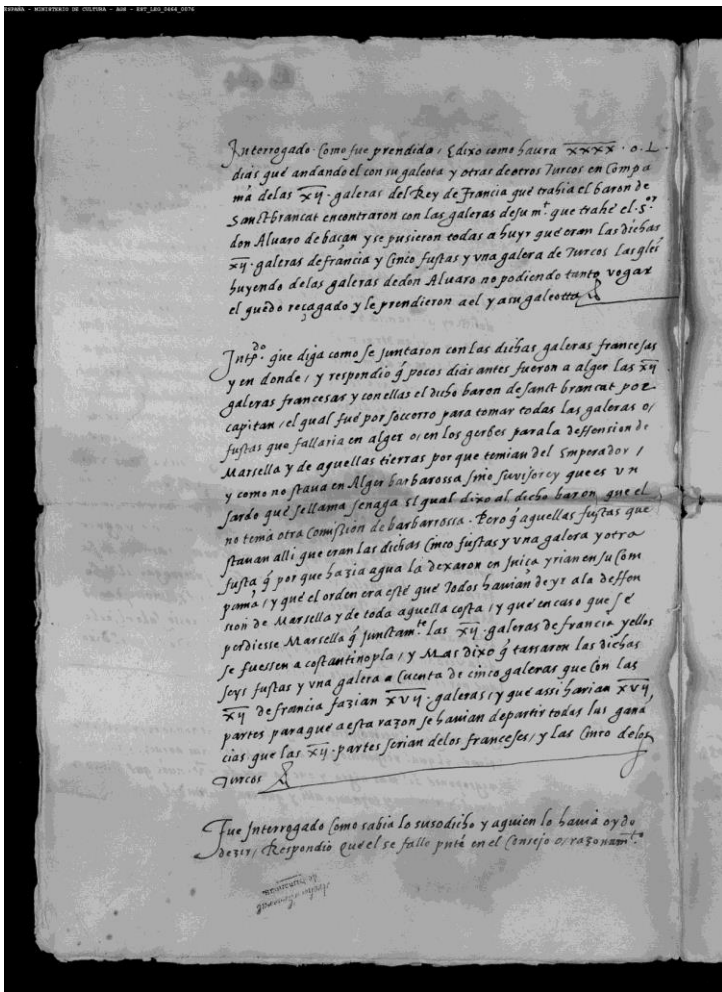 ESPAÑA - MINISTERIO DE CULTURA - AGS - EST_LEG_0464_0076
Interrogado como fue prendida / Et dixo como haura XXXX. o. L
dias que andando el con su galeota y otras de otros Turcos en Compa
nia de las xij. galeras del Rey de Francia que trahia el baron de
Sanctbrancat encontraron con las galeras de su m.t que trahe el .S.or
don Aluaro de baçan y se pusieron todas a huyr que eran las dichas
xij. galeras de francia y Cinco fustas y vna galera de Turcos Las qles
huyendo de las galeras de don Aluaro no podiendo tanto vogar
el quedo reçagado y le prendieron a el y a su galeotta
Intp.do que diga como se juntaron con las dichas galeras francesas
y en donde / y respondio q̃ pocos dias antes fueron a alger las xij
galeras francesas y con ellas el dicho baron de sanct brancat por
capitan / el qual fue por soccorro para tomar todas las galeras o /
fustas que fallaria en alger o / en los gerbes para la deffension de
Marsella y de aquellas tierras por que temian del Emperador /
y como no staua en Alger barbarossa sino su visorey que es vn
sardo que se llama senaga El qual dixo al dicho baron que el
no tenia otra Comission de barbarrossa. Pero q̃ aquellas fustas que
stauan alli que eran las dichas Cinco fustas y vna galera y otra
fusta q̃ por que hazia agua la dexaron en juiça yrian en su Com
pania / y que el orden era esté que Todos hauian de yr a la deffen
sion de Marsella y de toda aquella costa / y que en caso que se
perdiesse Marsella q̃ junctam.te las xij. galeras de francia y ellos
se fuessen a costantinopla / y Mas dixo q̃ tassaron las dichas
seys fustas y vna galera a Cuenta de cinco galeras que con las
xij de francia fazian xvij. galeras / y que assi harian xvij,
partes para que a esta razon se hauian de partir todas las gana
cias que las xij. partes serian de los franceses / y las Cinco de los
Turcos
Fue Interrogado Como sabia lo susodicho y a quien lo hauia oydo
dezir / Respondio Que el se fallo pnte en el Consejo o / razonam.to
Archivo General
de Simancas